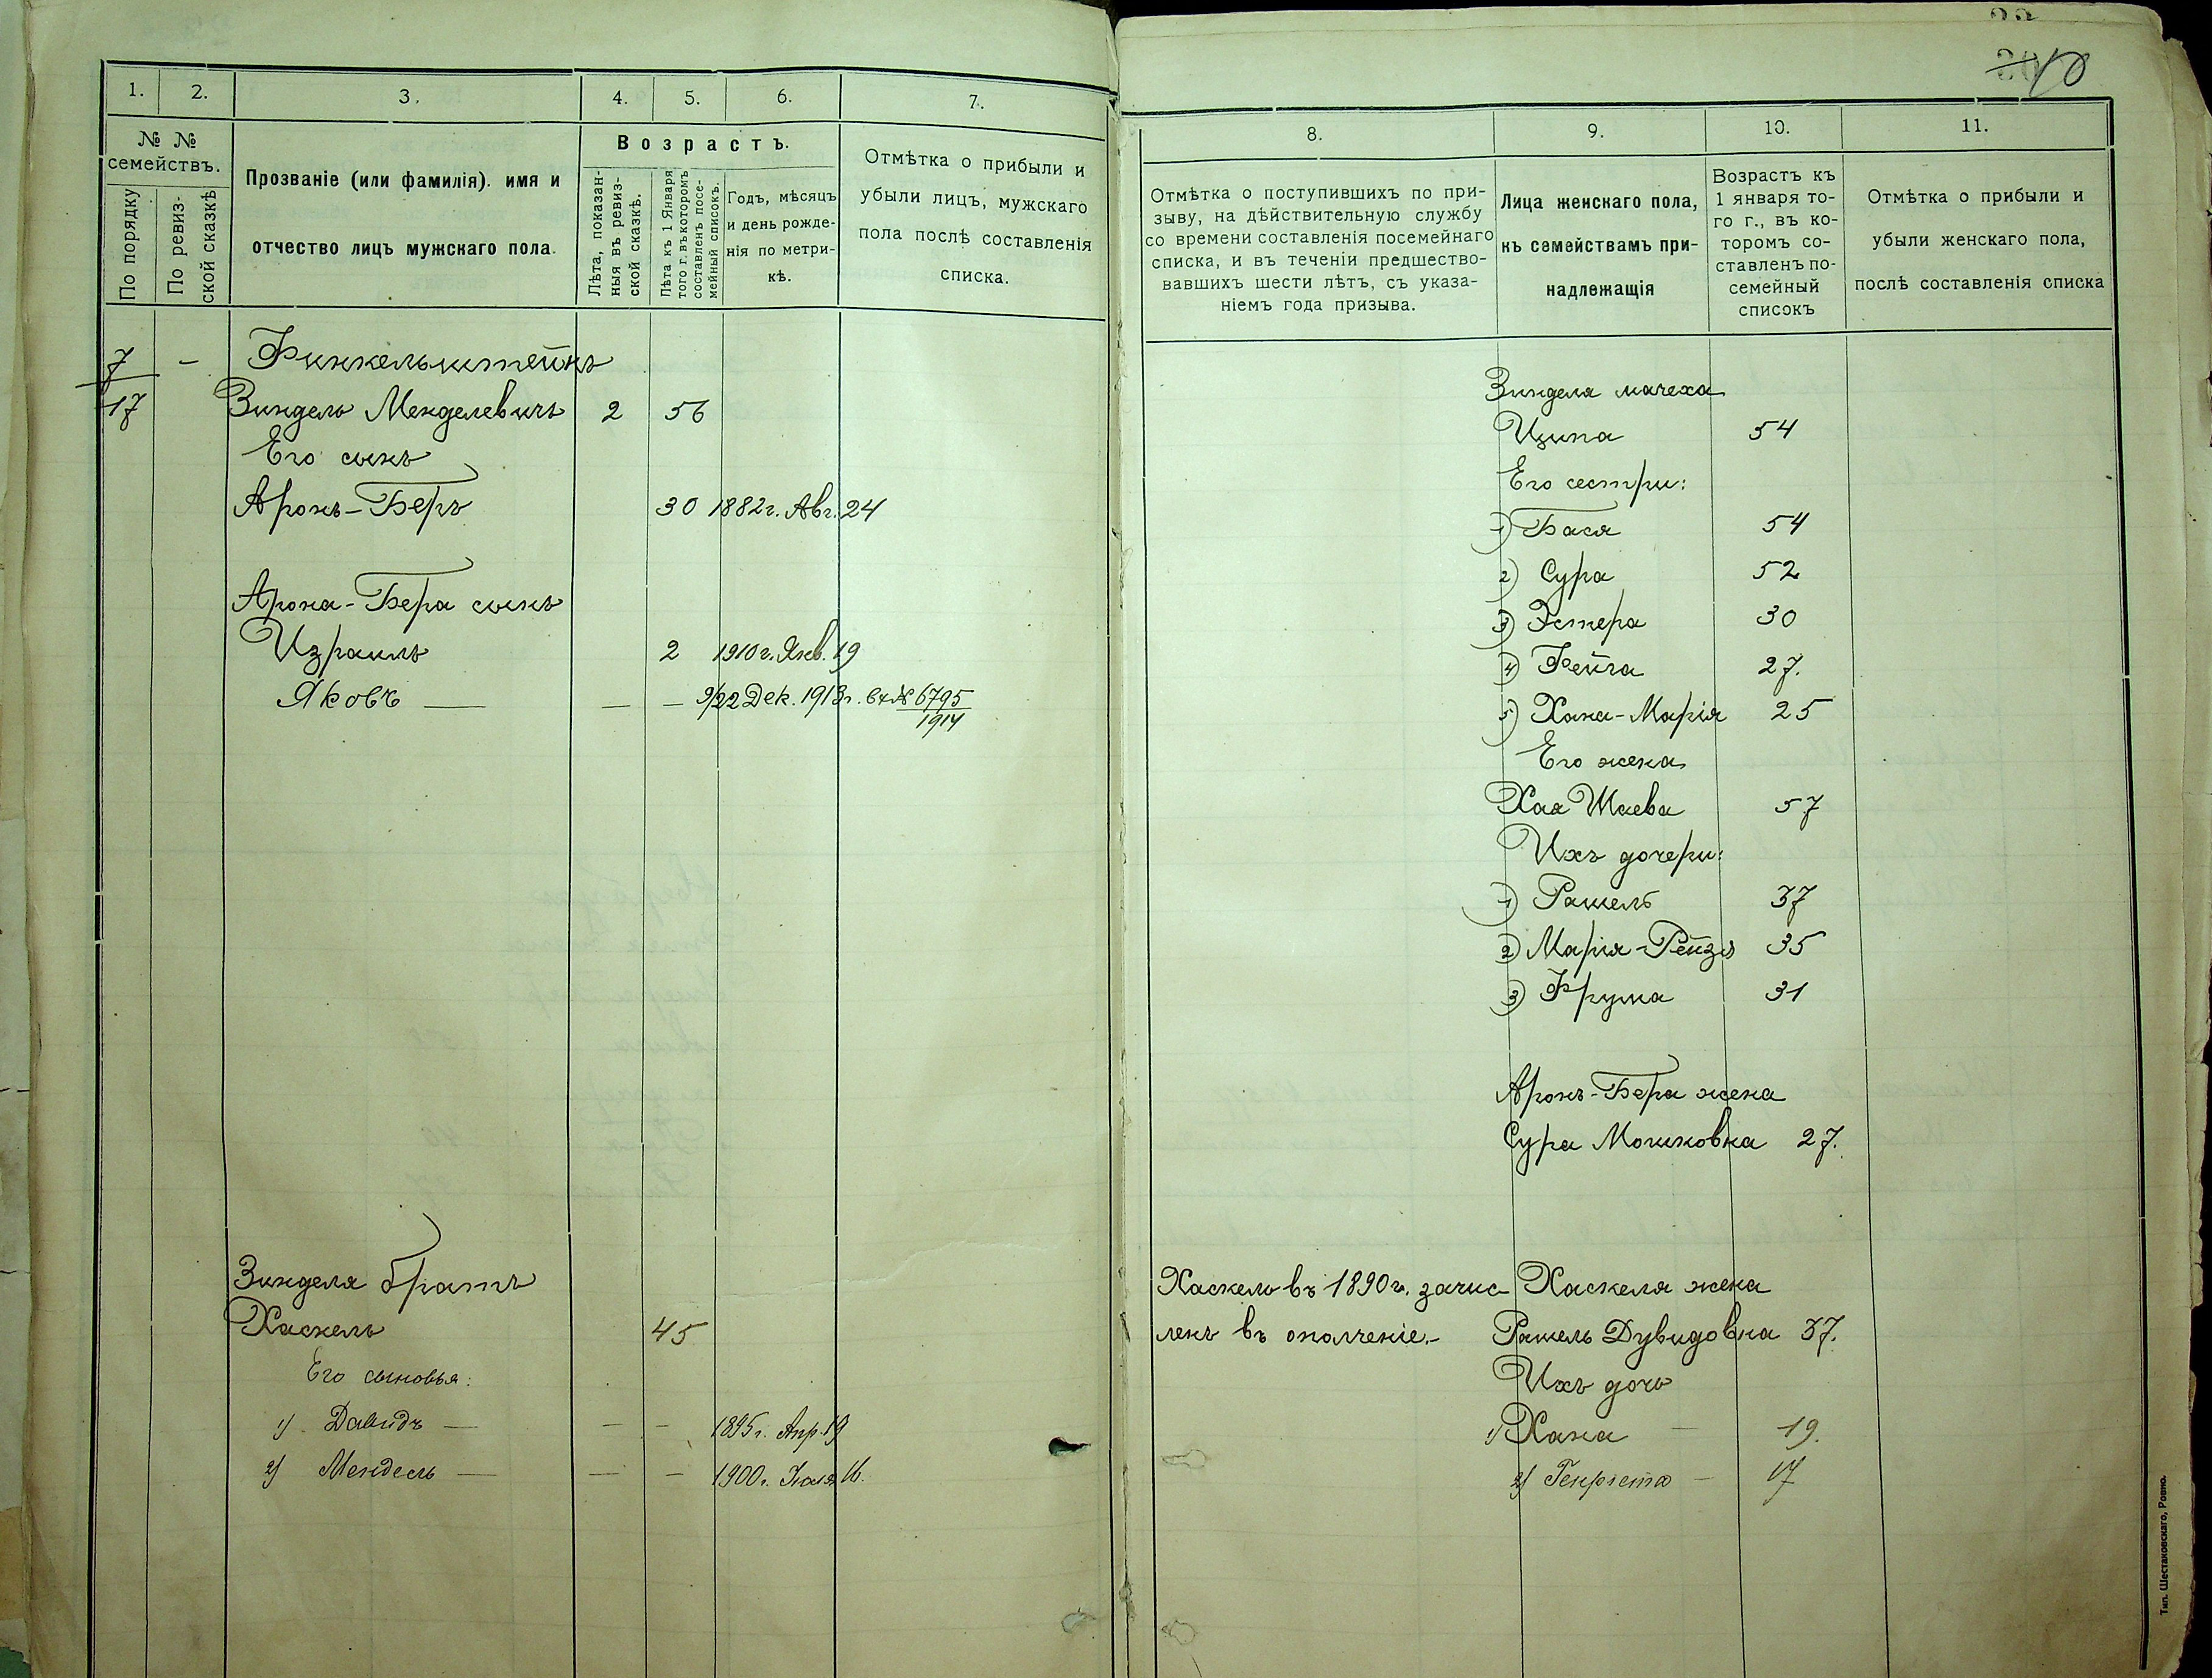 1.
2.
3.
4.
5.
6.
7.
№ №
семействъ.
По порядку
По ревиз-
ской сказкѣ
Прозваніе (или фамилія). имя и
отчество лицъ мужскаго пола.
Возрастъ.
Лѣта, показан-
ныя въ ревиз-
ской сказкѣ.
Лѣта къ 1 Января
того г. въ которомъ
составленъ посе-
мейный списокъ.
Годъ, мѣсяцъ
и день рожде-
нія по метри-
кѣ.
Отмѣтка о прибыли и
убыли лицъ, мужскаго
пола послѣ составленія
списка.
7 - Финкельштейнъ
17 Зиндель Менделевичъ 2 56
Его сынъ
Аронъ-Беръ 30 1882 г. Авг. 24
Арона-Бера сынъ
Израиль 2 1910 г. Янв. 19
Яковъ — — — 9/22 Дек. 1913 г. вх № 6795
1914
Зинделя братъ
Хаскель 45
Его сыновья:
1) Давидъ — — — 1895 г. Апр. 19
2) Мендель — — — 1900 г. Іюля 16.
40
8.
9.
10.
11.
Отмѣтка о поступившихъ по при-
зыву, на дѣйствительную службу
со времени составленія посемейнаго
списка, и въ теченіи предшество-
вавшихъ шести лѣтъ, съ указа-
ніемъ года призыва.
Лица женскаго пола,
къ семействамъ при-
надлежащія
Возрастъ къ
1 января то-
го г., въ ко-
торомъ со-
ставленъ по-
семейный
списокъ
Отмѣтка о прибыли и
убыли женскаго пола,
послѣ составленія списка
Зинделя мачеха
Ципа 54
Его сестры:
1) Бася 54
2) Сура 52
3) Эстера 30
4) Фейга 27.
5) Хана-Марія 25
Его жена
Хая Шаева 57
Ихъ дочери:
1) Рашель 37
2) Марія-Рейзя 35
3) Фрума 31
Аронъ-Бера жена
Сура Мошковна 27.
Хаскель въ 1890 г. зачис- Хаскеля жена
ленъ въ ополченіе.- Рашель Дувидовна 37.
Ихъ дочь
1) Хана — 19.
2) Генріета — 17
Тип. Шестаковскаго, Ровно.